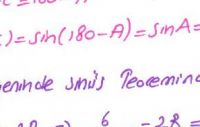 ) = sin(180-A) = sinA =
eninde sinüs Teoremind
⇒ 6 = 2R =